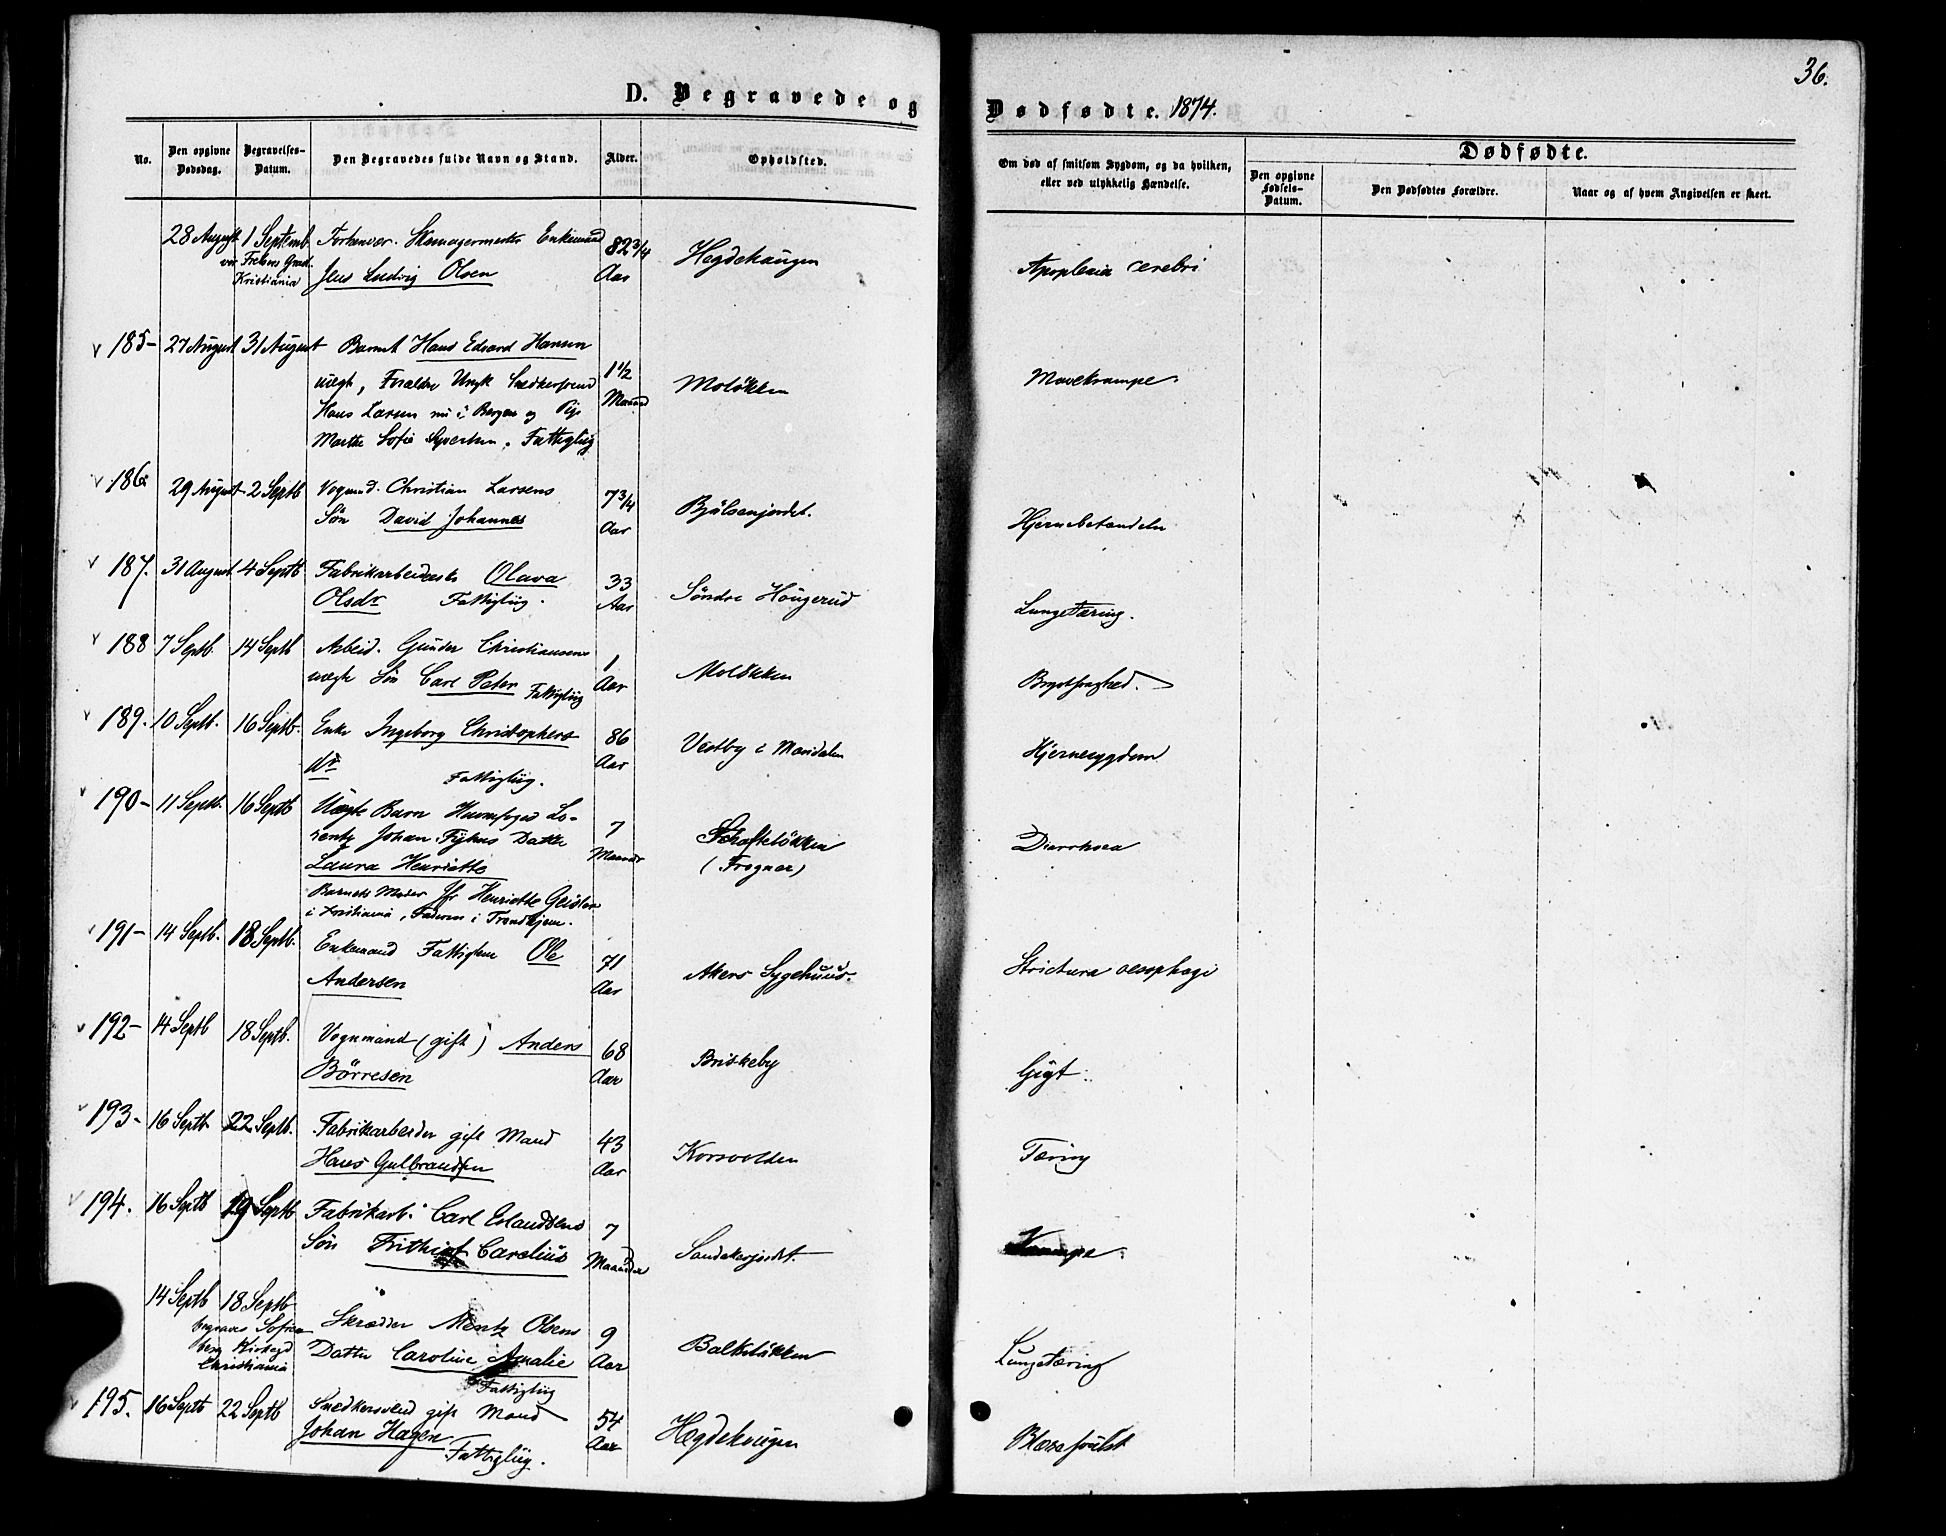 36.
D. Begravede og
Dødfødte. 1874.
No.
Den opgivne Dødsdag.
Begravelses-Datum.
Den Begravedes fulde Navn og Stand.
Alder.
Opholdsted.
Om død af smitsom Sygdom, og da hvilken, eller ved ulykkelig Hændelse.
Dødfødte.
Den opgivne Fødsels-Datum.
Den Dødfødtes Forældre.
Naar og af hvem Angivelsen er skeet.
28 August 1 Septemb. Forhenvær. Skomagermester Enkemand 82 3/4
Vor Frelsers Grav. Kristiania Jens Ludvig Olsen Aar Hegdehaugen Apoplexia cerebri
185- 27 August 31 August Barnet Hans Edvard Hansen
uægt, Forældre Ungk Snedkersvend 1 1/2
Hans Larsen nu i Bergen og Pige Maaned Moløkken Mavekrampe.
Marthe Sofie Syvertsen. Fattiglig
186 29 August 2 Septb Vognmd. Christian Larsens 7 3/4
Søn David Johannes Aar Bjølsenjordet. Hjernebetændelse
187. 31 August 4 Septb Fabrikarbeiderske Olava 33
Olsdr Fattiglig. Aar Søndre Hougerud Lungetæring.
188 7 Septb. 14 Septb Arbeid. Gunder Christiansens 1
uægte Søn Carl Peter Fattiglig Aar Moløkken Brystsyghed.
189. 10 Septb. 16 Septb. Enke Ingeborg Christophers 86
dr Fattiglig. Aar Vestby i Maridalen Hjernesygdom
190- 11 Septb. 16 Septb Uægte Barn Huusfoged Lo-
rentz Johan Datter 7
Laura Henriette Maaneder (Frogner) Diarrhoea
Barnets Moder Jfr Henriette
i Kristiania, Faderen i Trondhjem.
191- 14 Septb. 18 Septb. Enkemand Fattiglem Ole 71
Andersen Aar Akers Sygehuus. Strictura oesophagi
192- 14 Septb 18 Septb. Vognmand (gift) Anders 68
Børresen Aar Briskeby Gigt.
193- 16 Septb 22 Septb. Fabrikarbeider gift Mand 43
Hans Gulbrandsen Aar Korsvolden Tæring
194. 16 Septb 19 Septb Fabrikarb. Carl Erlandsens 7
Søn Frithjof Carelius Maaneder Sandakerjordet. Krampe.
14 Septb 18 Septb
begraves Sofien Skrædder Mentz Olsens 9
berg Kirkegd Datter Caroline Amalie Aar Balkeløkken Lungetæring
Christiania Fattiglig
195. 16 Septb 22 Septb Snedkersvend gift Mand 54
Johan Hagen Aar Hegdehaugen
Fattiglig.